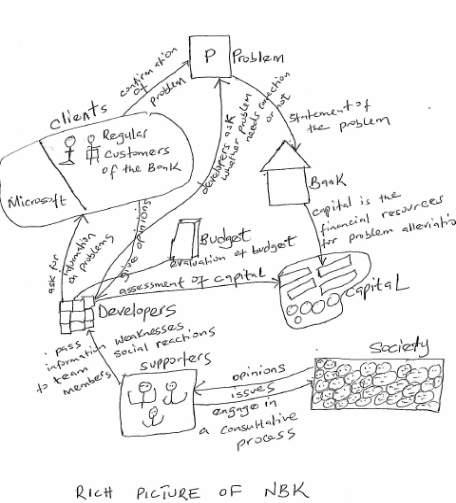 P
Problem
confirmation
of
problem
clients
Regular
customers
of the Bank
Microsoft
developers ask
whether problem
needs correction
or not
statement of
the problem
Bank
capital is the
financial resources
for problem alleviation
ask for
information
on problems
give opinions
Budget
evaluation of budget
assessment of capital
capital
Developers
pass
information weaknesses
to team social reactions
members
supporters
Society
opinions
issues
engage in
a consultative
process
RICH PICTURE OF NBK